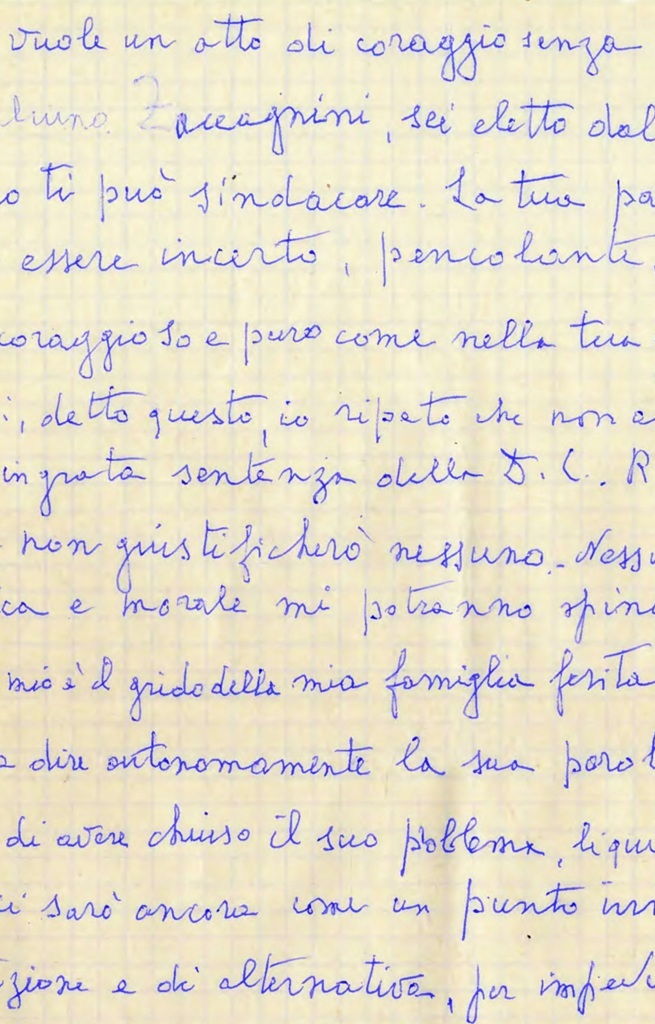 vuole un atto di coraggio senza
Zaccagnini, sei eletto dal
o ti può sindacare. La tua pa
essere incerto, pencolante,
coraggioso e puro come nella tua
i, detto questo, io ripeto che non a
ingrata sentenza della D.C.. R
non giustificherò nessuno. Nessu
ca e morale mi potranno spin
mio è il grido della mia famiglia ferita
a dire autonomamente la sua parol
di avere chiuso il suo poblema, liqu
ci sarò ancora come un punto irr
zione e di alternativa, per imped